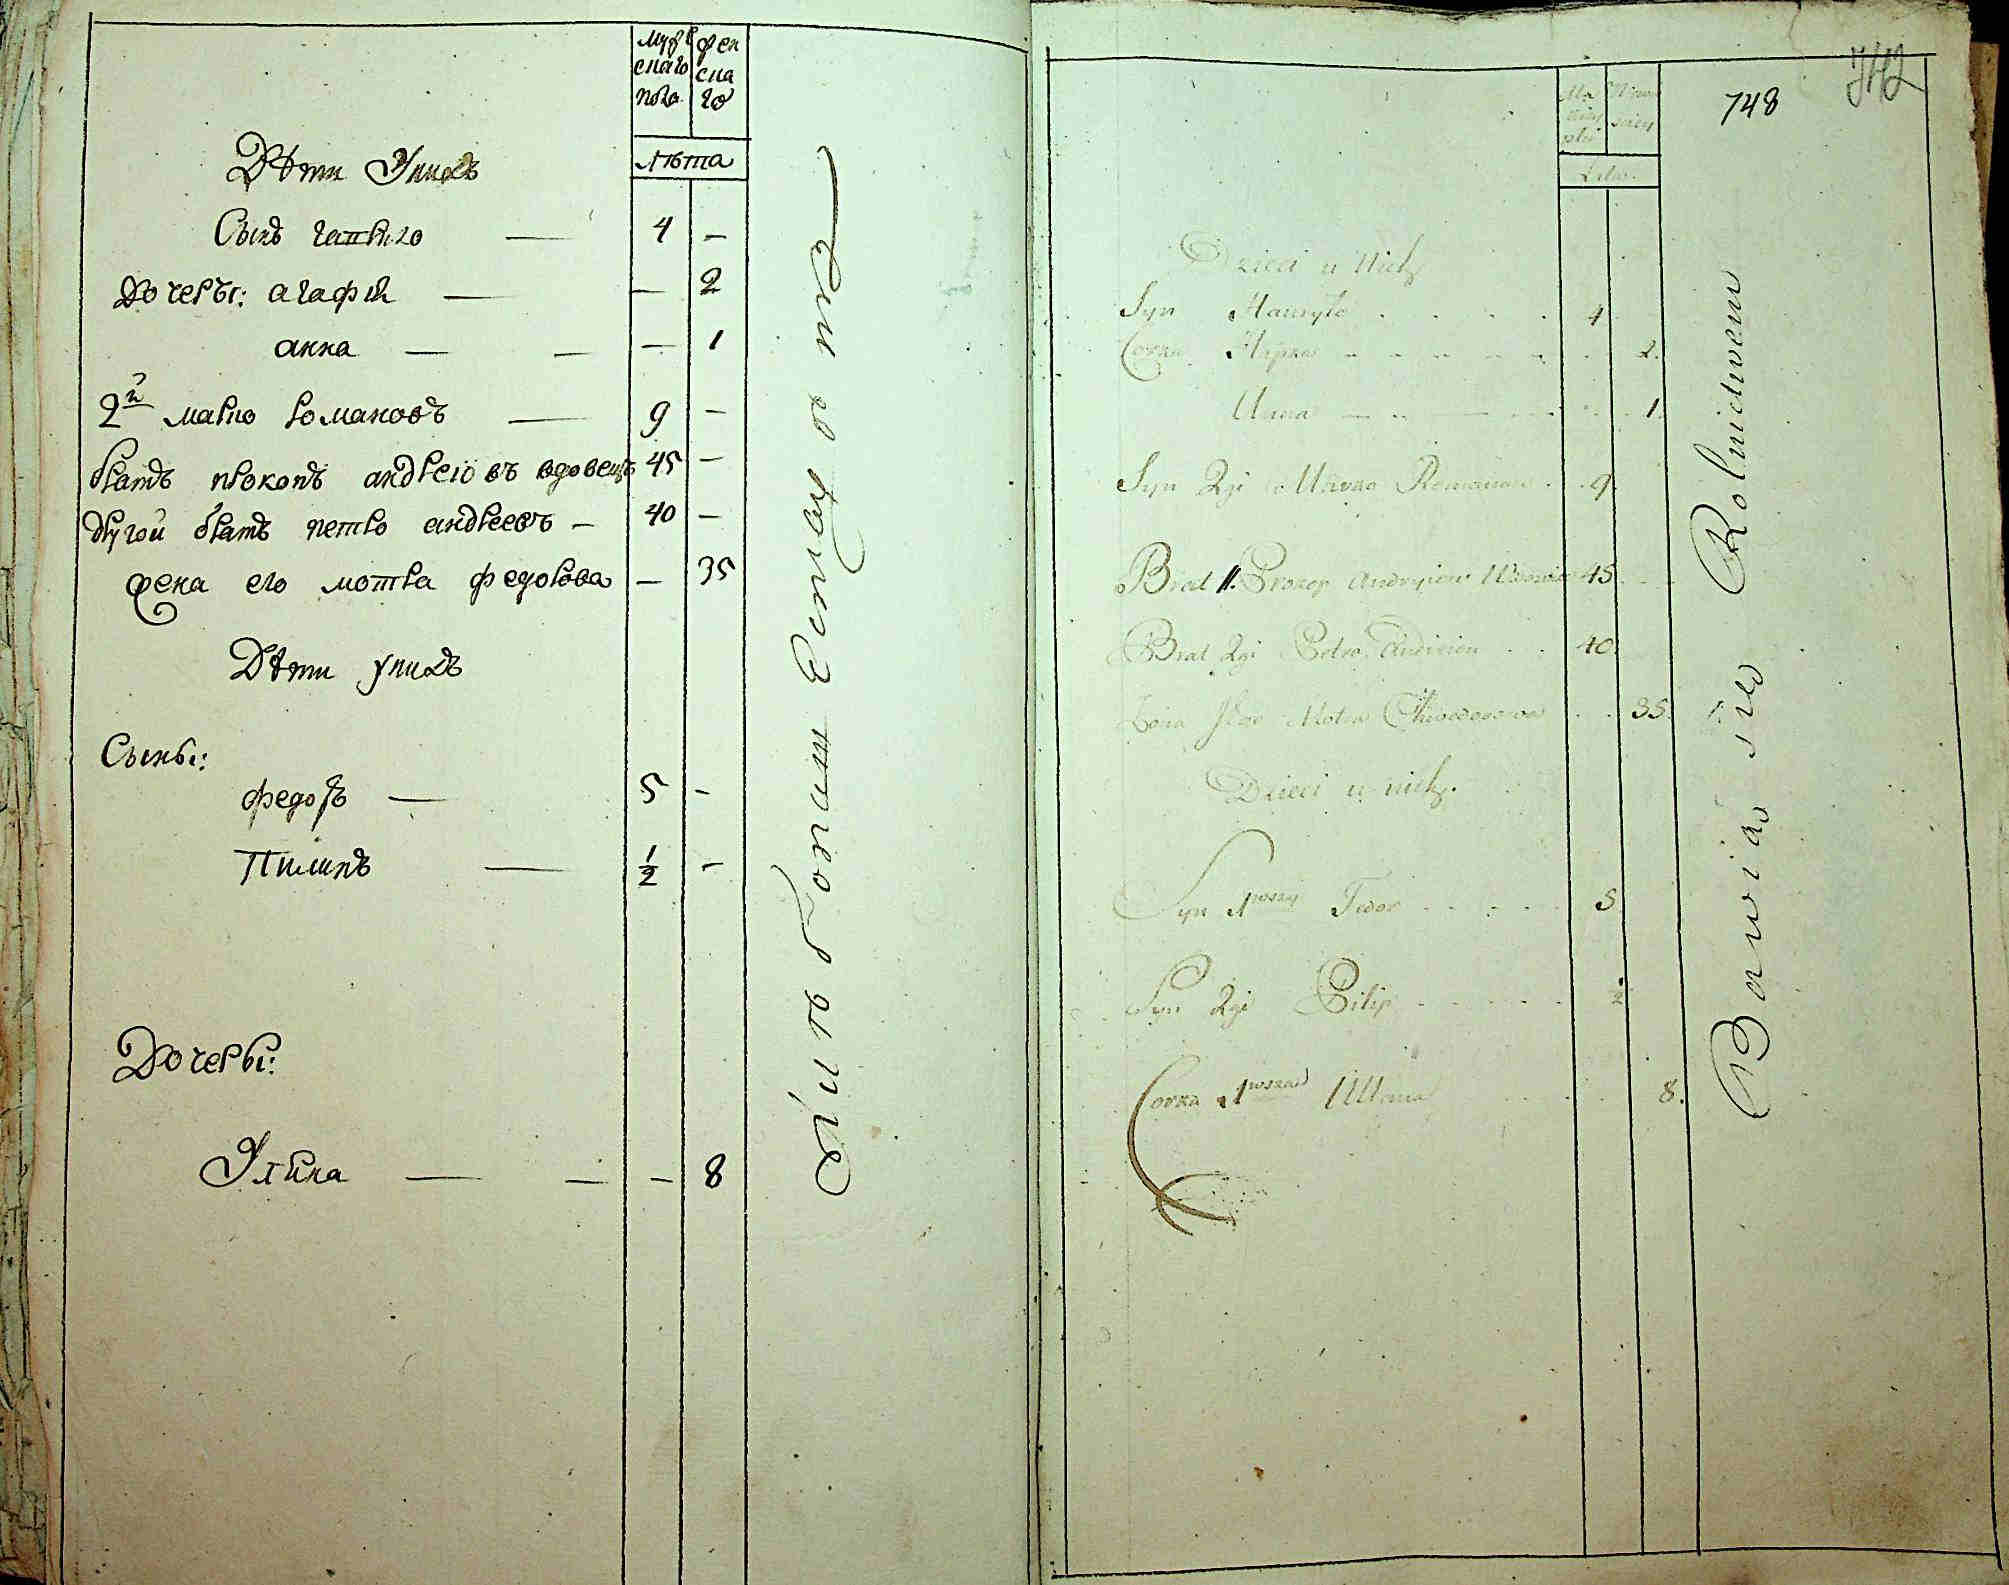 мужескаго пола
женскаго
лѣта
Дѣти У нихъ
Сынъ гаврило — 4 —
Дочеры: агафия — — 2
анна — — — 1
2й марко романовъ — 9 —
братъ прокопъ андреювъ вдовецъ 45 —
другой братъ петро андреевъ — 40 —
жена его мотра федорова — 35
Дѣти у нихъ
Сыны:
федоръ — 5 —
Пилипъ — 1/2 —
Дочеры:
Улїяна — — — 8
748
742
Lata
Dzieci u Nich
Syn Hawryło 4
Corka Hapka 2.
Anna 1
Syn 2gi Marko Romanow 9
Brat 1. Prokop Andryiew Wdowiec 45
Brat 2gi Petro Andrieiew 40
Żona Jego Motra Theodorowa 35.
Dzieci u nich.
Syn 1wszy Fedor 5
Syn 2gi Pilip 1/2
Corka 1wsza Ullana 8.
Bawią się Rolnictwem